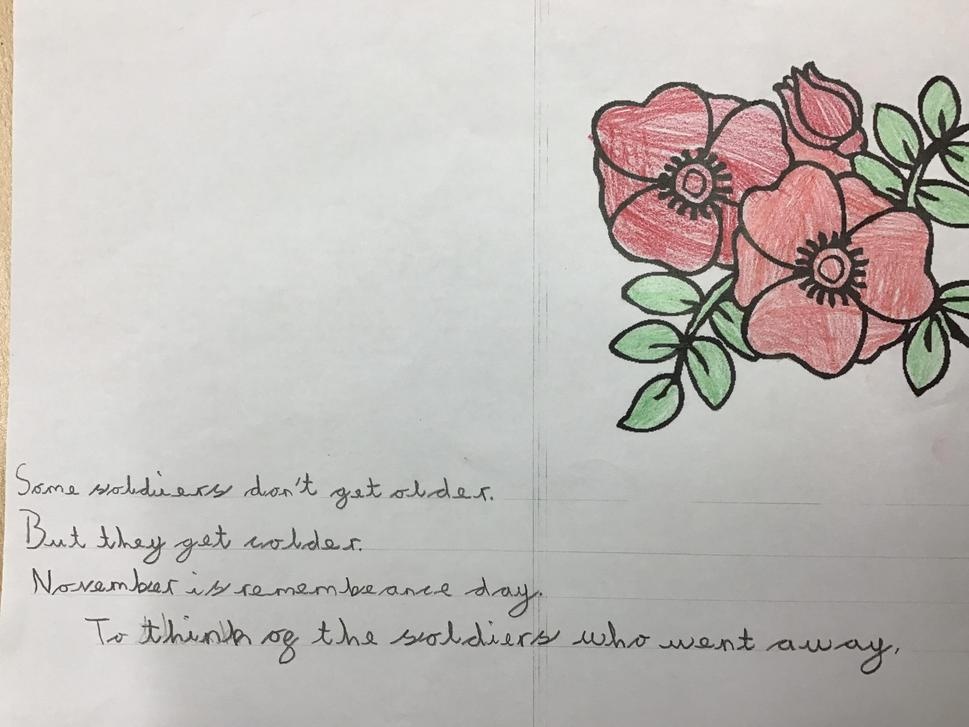 Some soldiers don't get older.
But they get colder.
November is remembeance day.
To think og the soldiers who went away.